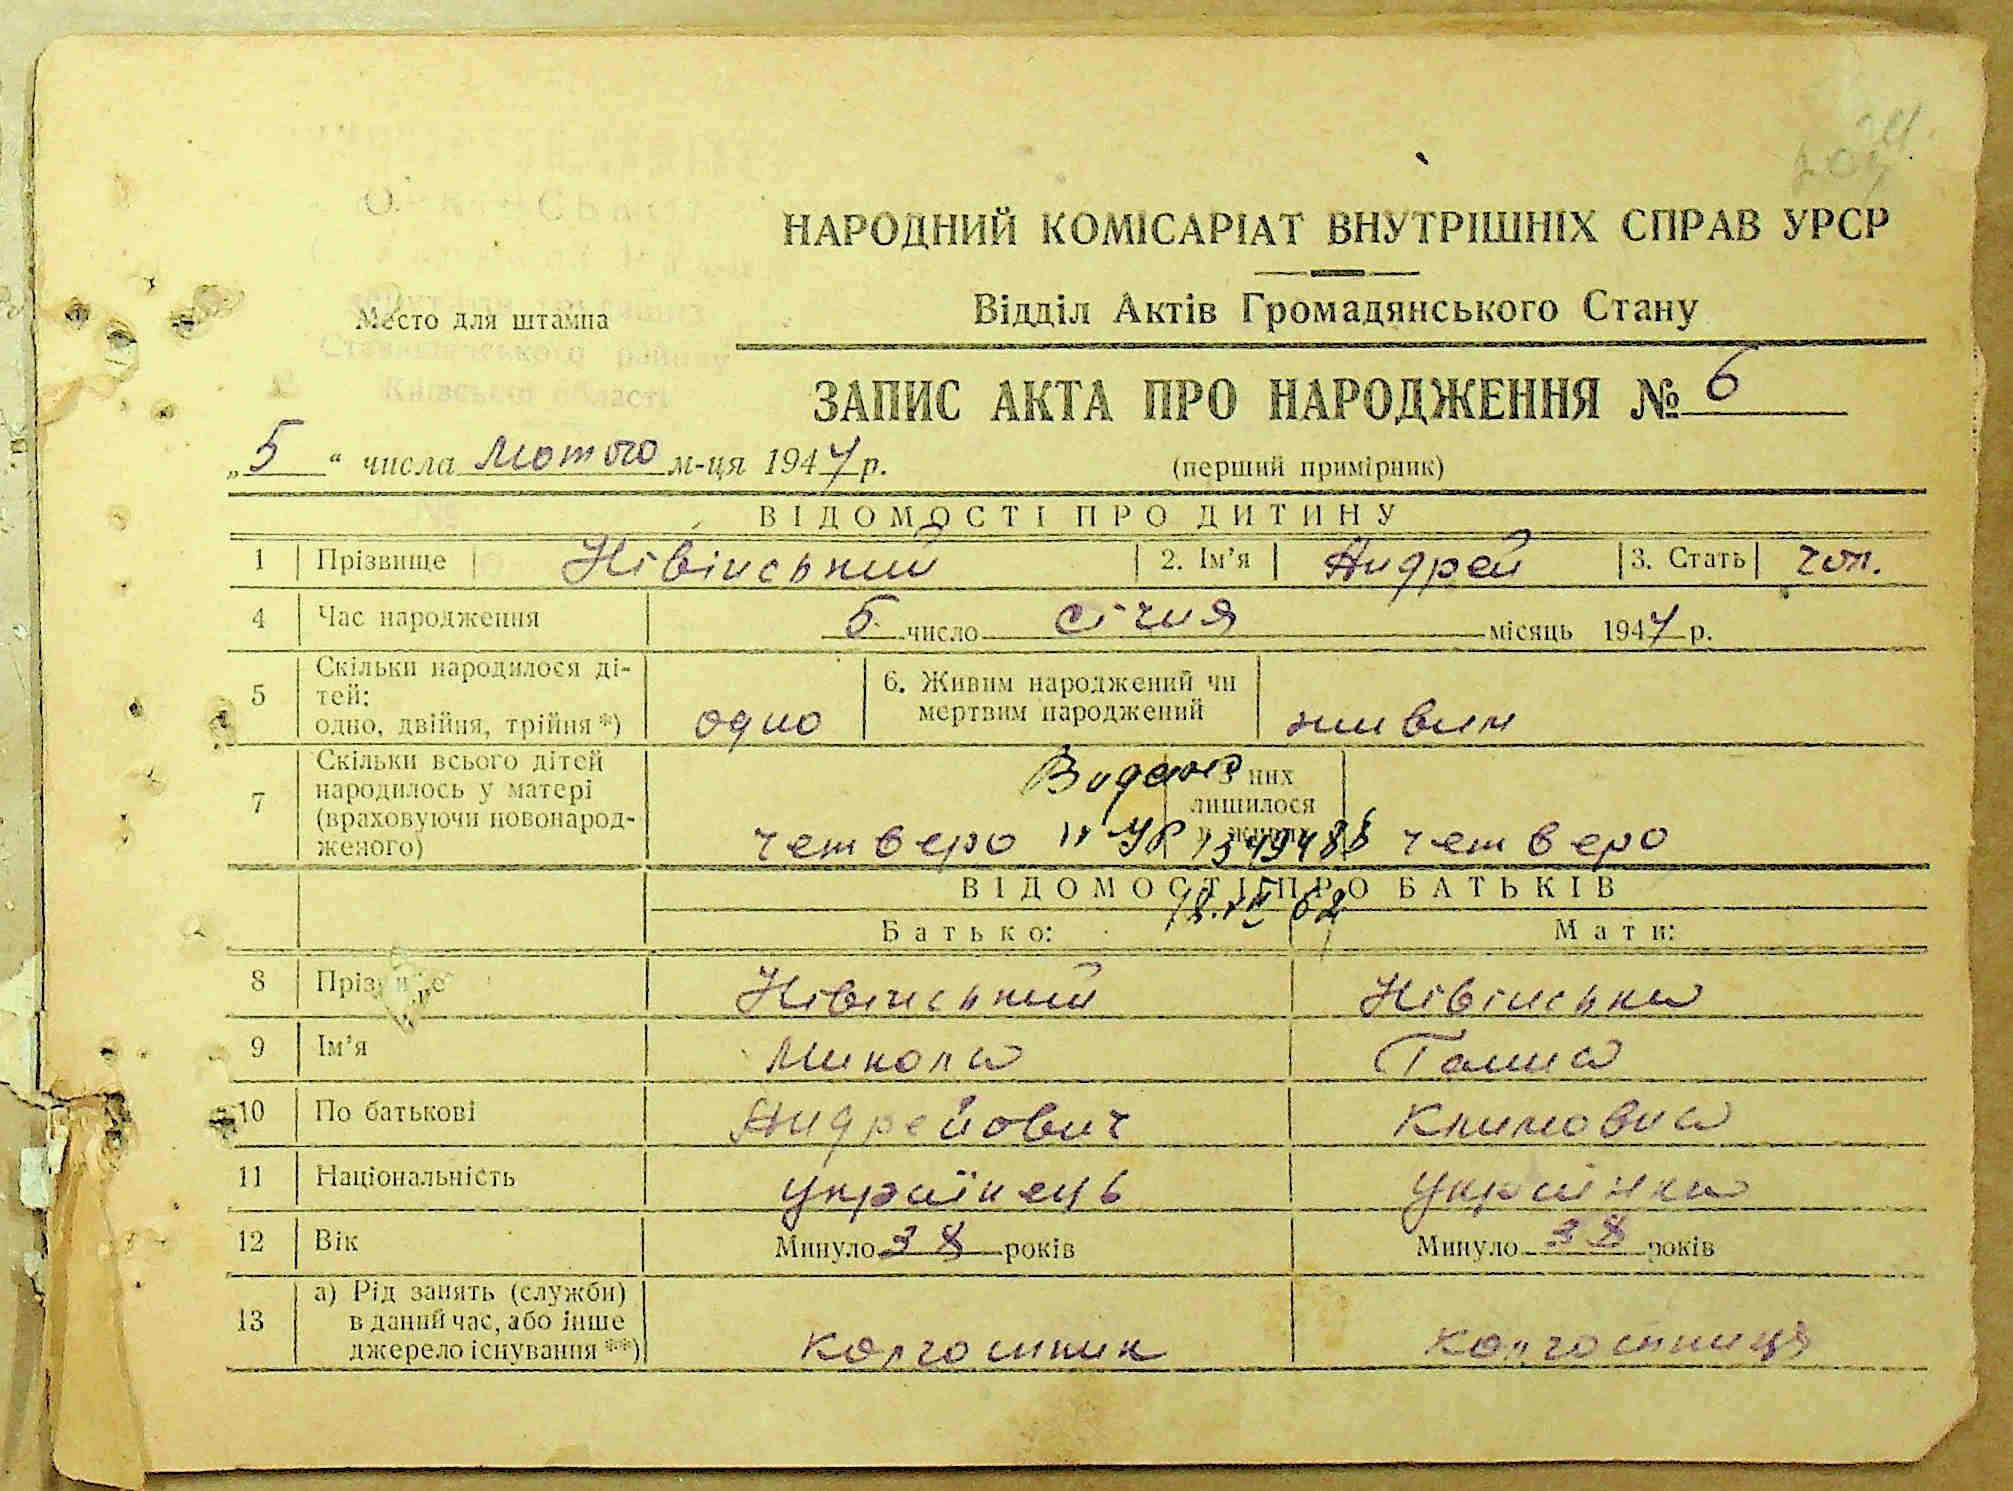 НАРОДНИЙ КОМІСАРІАТ ВНУТРІШНІХ СПРАВ УРСР
Место для штампа
Відділ Актів Громадянського Стану
Ставищенського району
Київської області
ЗАПИС АКТА ПРО НАРОДЖЕННЯ № 6
„5“ числа лютого м-ця 1947 р. (перший примірник)
ВІДОМОСТІ ПРО ДИТИНУ
1 Прізвище Нівінський 2. Ім’я Андрей 3. Стать чол.
4 Час народження 5 число січня місяць 1947 р.
5 Скільки народилося ді-
тей:
одно, двійня, трійня *) одно
6. Живим народжений чи
мертвим народжений живим
7 Скільки всього дітей
народилось у матері
(враховуючи новонарод-
женого) четверо
З них
лишилося
у живих четверо
ВІДОМОСТІ ПРО БАТЬКІВ
Батько: Мати:
8 Прізвище Нівінський Нівінська
9 Ім’я Микола Галина
10 По батькові Андрейович Климовна
11 Національність українець українка
12 Вік Минуло 38 років Минуло 38 років
13 а) Рід занять (служби)
в даний час, або інше
джерело існування **) колгоспник колгоспниця